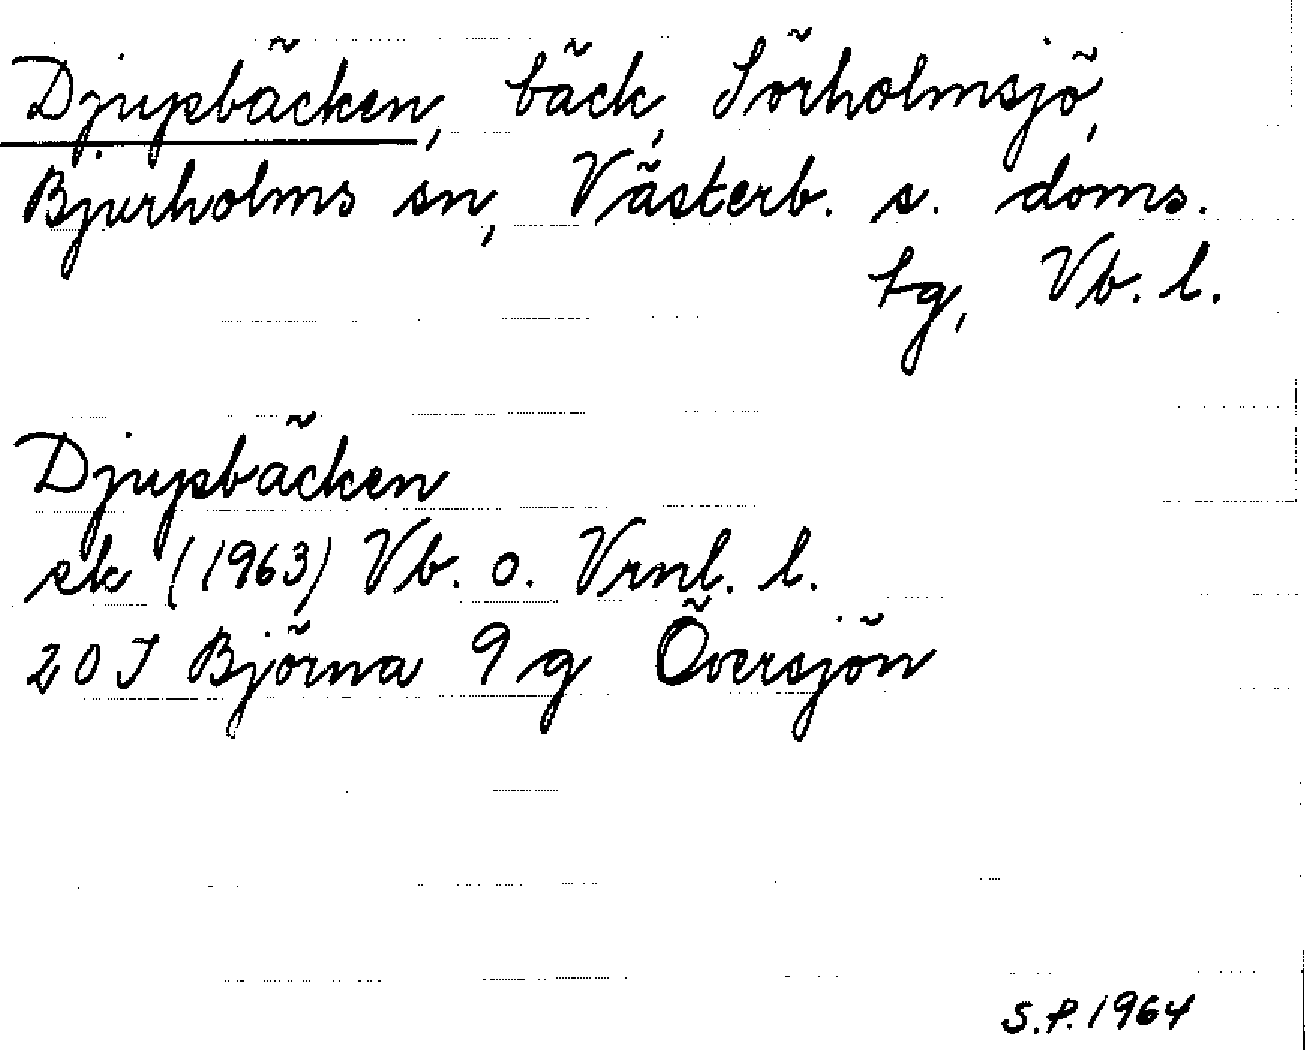 Djupbäcken, bäck, Sörholmsjö,
Bjurholms sn, Västerb. s. doms.
tg, Vb. l.
Djupbäcken
ek (1963) Vb. o. Vrnl. l.
20 I Björna 9 g Översjön
S.P. 1964